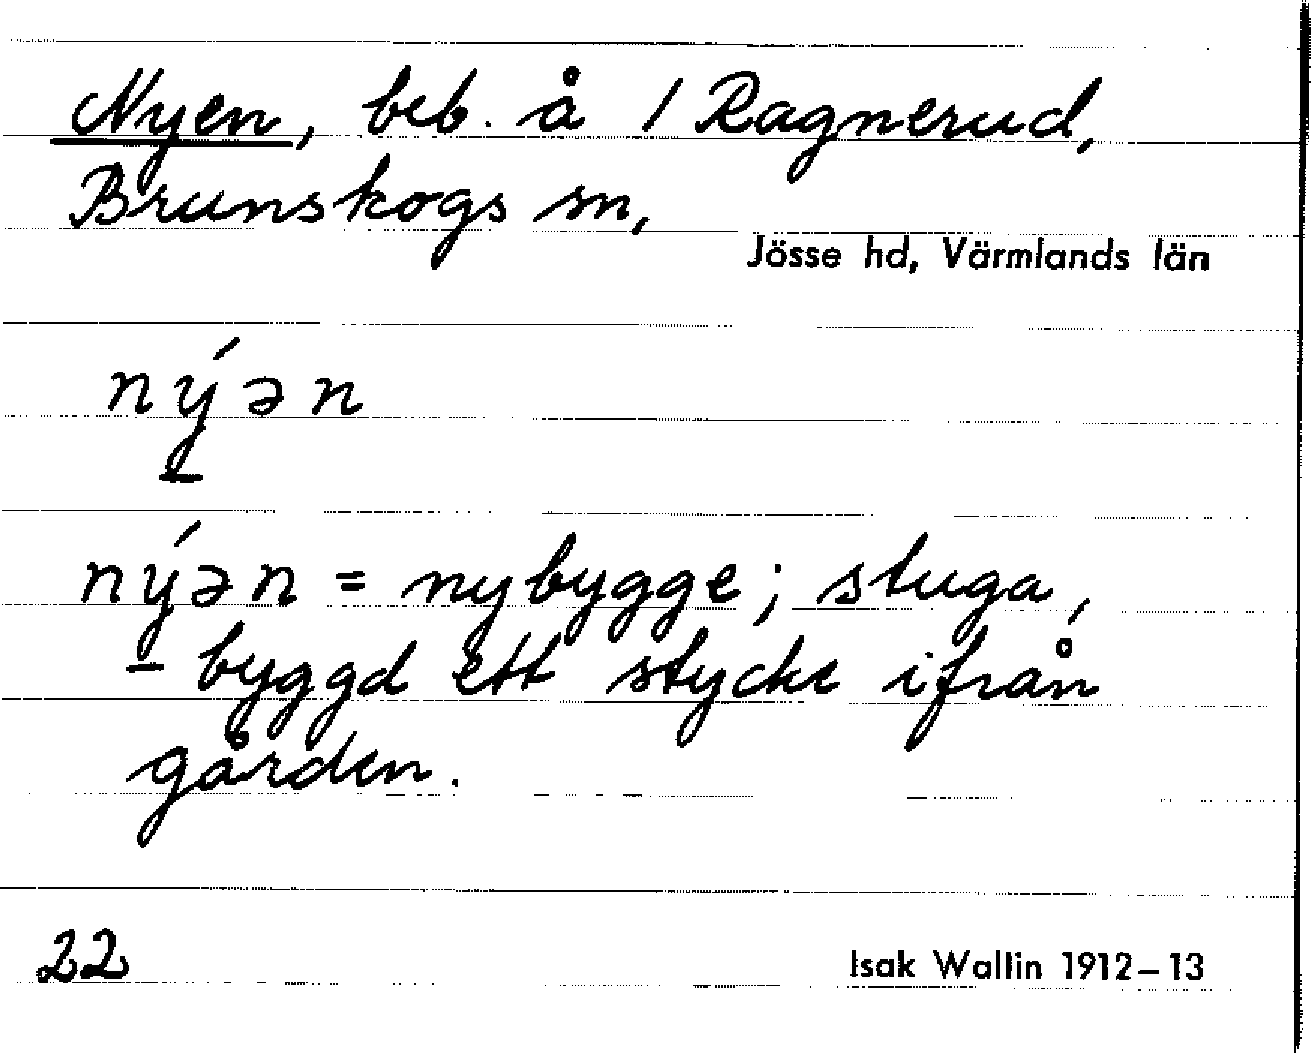 Nyen, beb. å / Ragnerud,
Brunskogs sn,
Jösse hd, Värmlands län
ný̠ən
ný̠ən = nybygge; stuga,
byggd ett stycke ifrån
gården.
22
Isak Wallin 1912–13